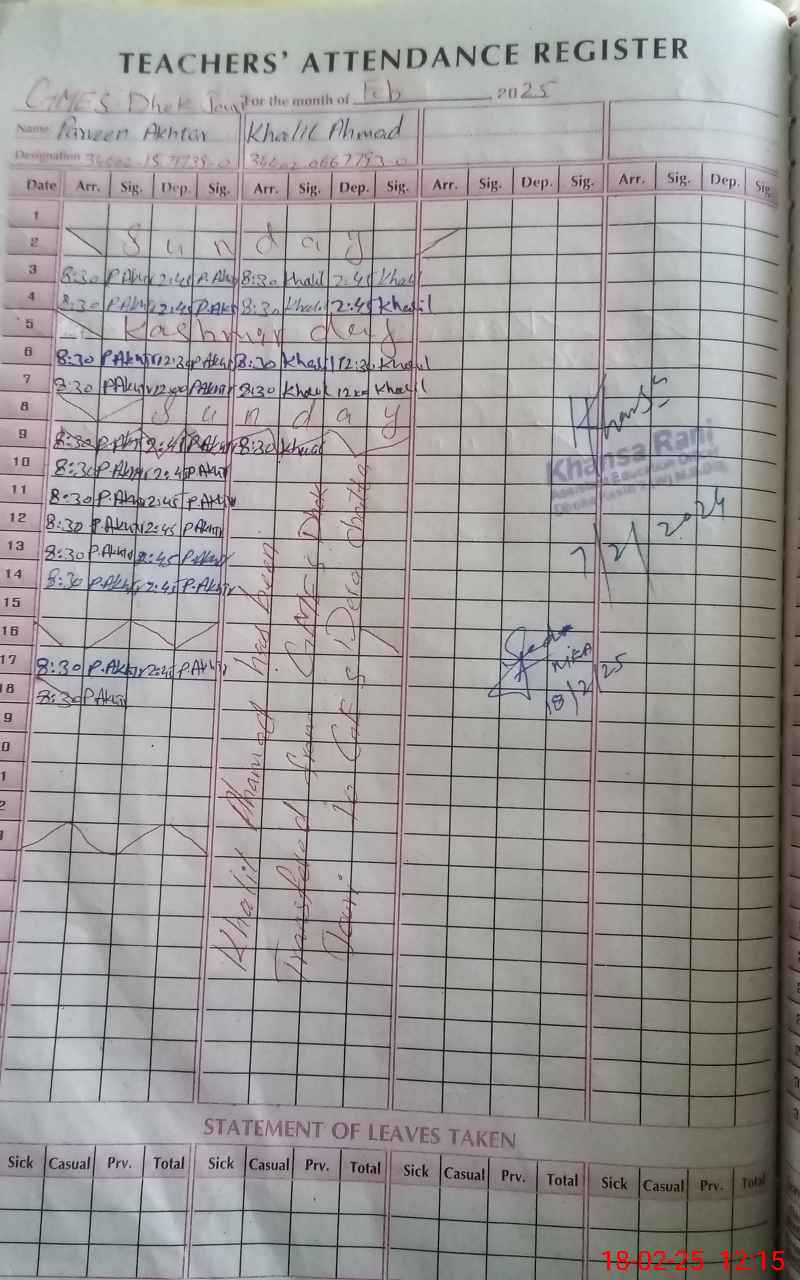 TEACHERS' ATTENDANCE REGISTER
GMES Dhok Jouri For the month of Feb 2025
Name Parveen Akhtar Khalil Ahmad
Designation
Date Arr. Sig. Dep. Sig. Arr. Sig. Dep. Sig. Arr. Sig. Dep. Sig. Arr. Sig. Dep. Sig.
1
2 Sunday
3 8:30 P.Akhtr 2:45 P.Akhtr 8:30 Khalil 2:45 Khalil
4 8:30 P.Akhtr 2:45 P.Akhtr 8:30 Khalil 2:45 Khalil
5 Kashmir day
6 8:30 P.Akhtr 12:30 P.Akhtr 8:30 Khalil 12:30 Khalil
7 8:30 P.Akhtr 12:00 P.Akhtr 8:30 Khalil 12:00 Khalil
8 Sunday
9 8:30 P.Akhtr 2:45 P.Akhtr 8:30 Khalil
10 8:30 P.Akhtr 2:45 P.Akhtr
11 8:30 P.Akhtr 2:45 P.Akhtr
12 8:30 P.Akhtr 2:45 P.Akhtr
13 8:30 P.Akhtr 2:45 P.Akhtr
14 8:30 P.Akhtr 2:45 P.Akhtr
15
16
17 8:30 P.Akhtr 2:45 P.Akhtr
18 8:30 P.Akhtr
9
0
1
2
Khalil Ahamad has been
Transfered from GMES Dhok
Jouri to
Khansa
Khansa Rani
7/2/2024
18/2/25
STATEMENT OF LEAVES TAKEN
Sick Casual Prv. Total Sick Casual Prv. Total Sick Casual Prv. Total Sick Casual Prv. Total
18-02-25 12:15